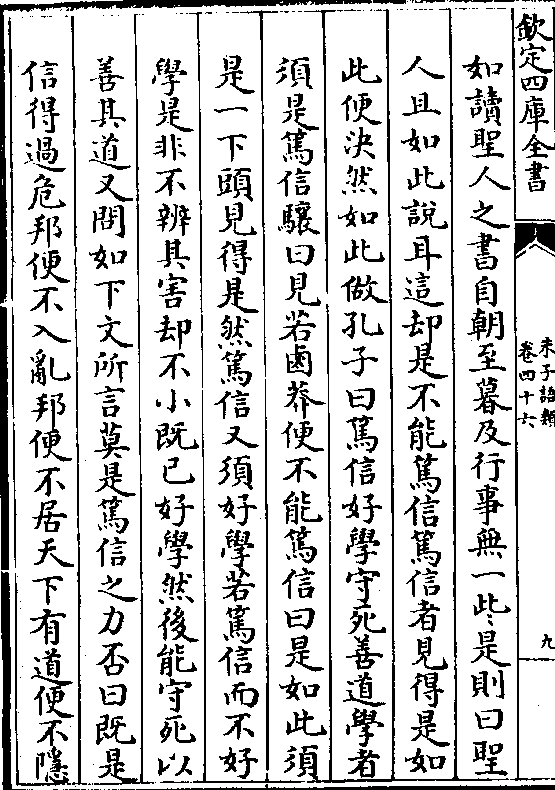 欽定四庫全書
朱子語類
卷四十六
九
如讀聖人之書自朝至暮及行事無一些是則曰聖
人且如此說耳這却是不能篤信篤信者見得是如
此便決然如此做孔子曰篤信好學守死善道學者
須是篤信驤曰見若鹵莽便不能篤信曰是如此須
是一下頭見得是然篤信又須好學若篤信而不好
學是非不辨其害却不小既已好學然後能守死以
善其道又問如下文所言莫是篤信之力否曰既是
信得過危邦便不入亂邦便不居天下有道便不隱